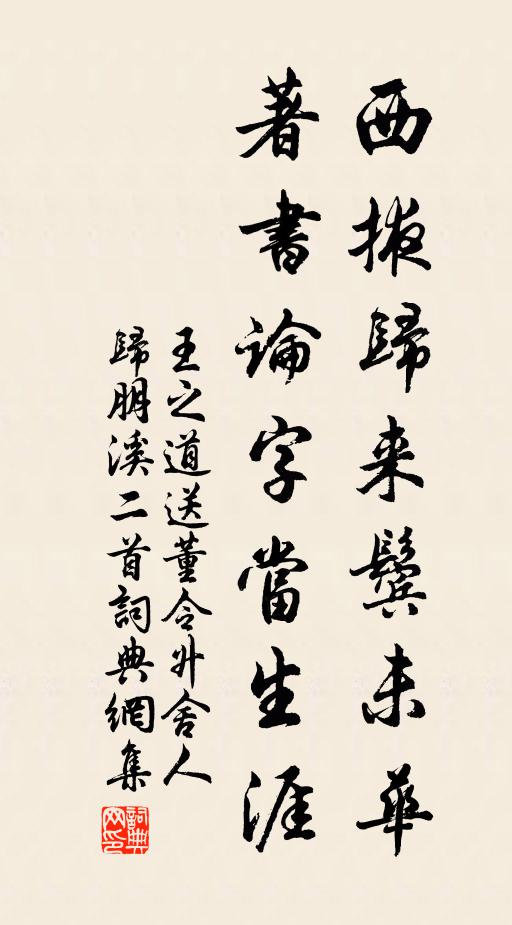 西掖歸来鬓未華
著書論字當生涯
王之道送董令升舍人
歸朋溪二首詞典網集
詞典网印